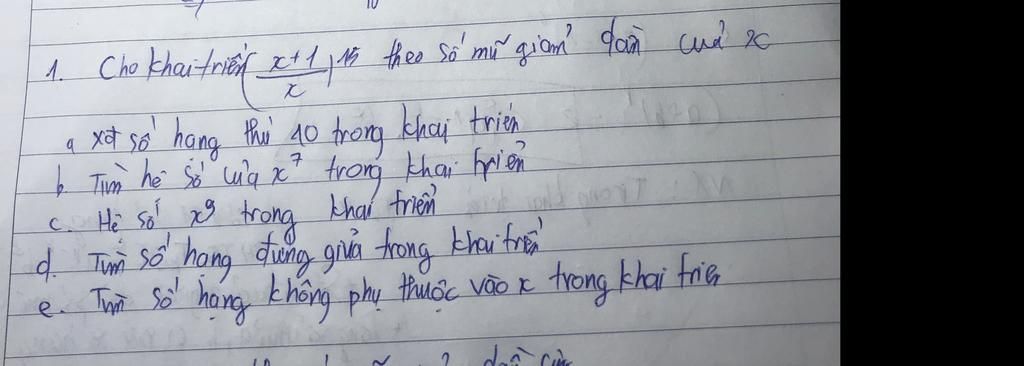 1. Cho khai triển (x+1/x)^15 theo số mũ giảm dần của x
a xđ số hạng thứ 10 trong khai triển
b Tìm hệ số của x^7 trong khai triển
c. Hệ số x^9 trong khai triển
d. Tìm số hạng đứng giữa trong khai triển
e. Tìm số hạng không phụ thuộc vào x trong khai triển